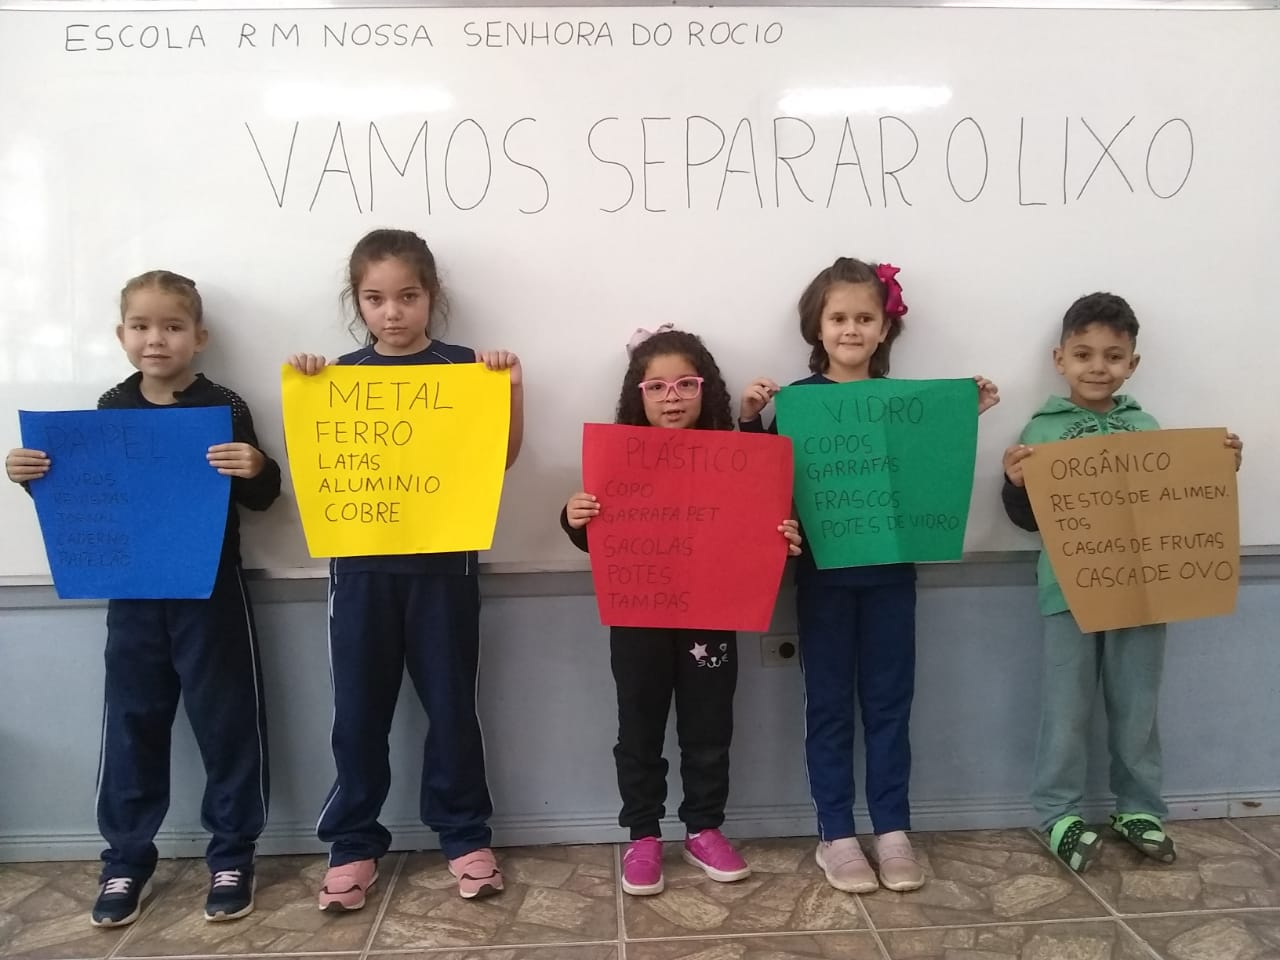 ESCOLA R M NOSSA SENHORA DO ROCIO
VAMOS SEPARAR O LIXO
PAPEL
LIVROS
REVISTAS
JORNAL
CADERNO
PAPELÃO
METAL
FERRO
LATAS
ALUMINIO
COBRE
PLÁSTICO
COPO
GARRAFA PET
SACOLAS
POTES
TAMPAS
VIDRO
COPOS
GARRAFAS
FRASCOS
POTES DE VIDRO
ORGÂNICO
RESTOS DE ALIMEN.
TOS
CASCAS DE FRUTAS
CASCA DE OVO